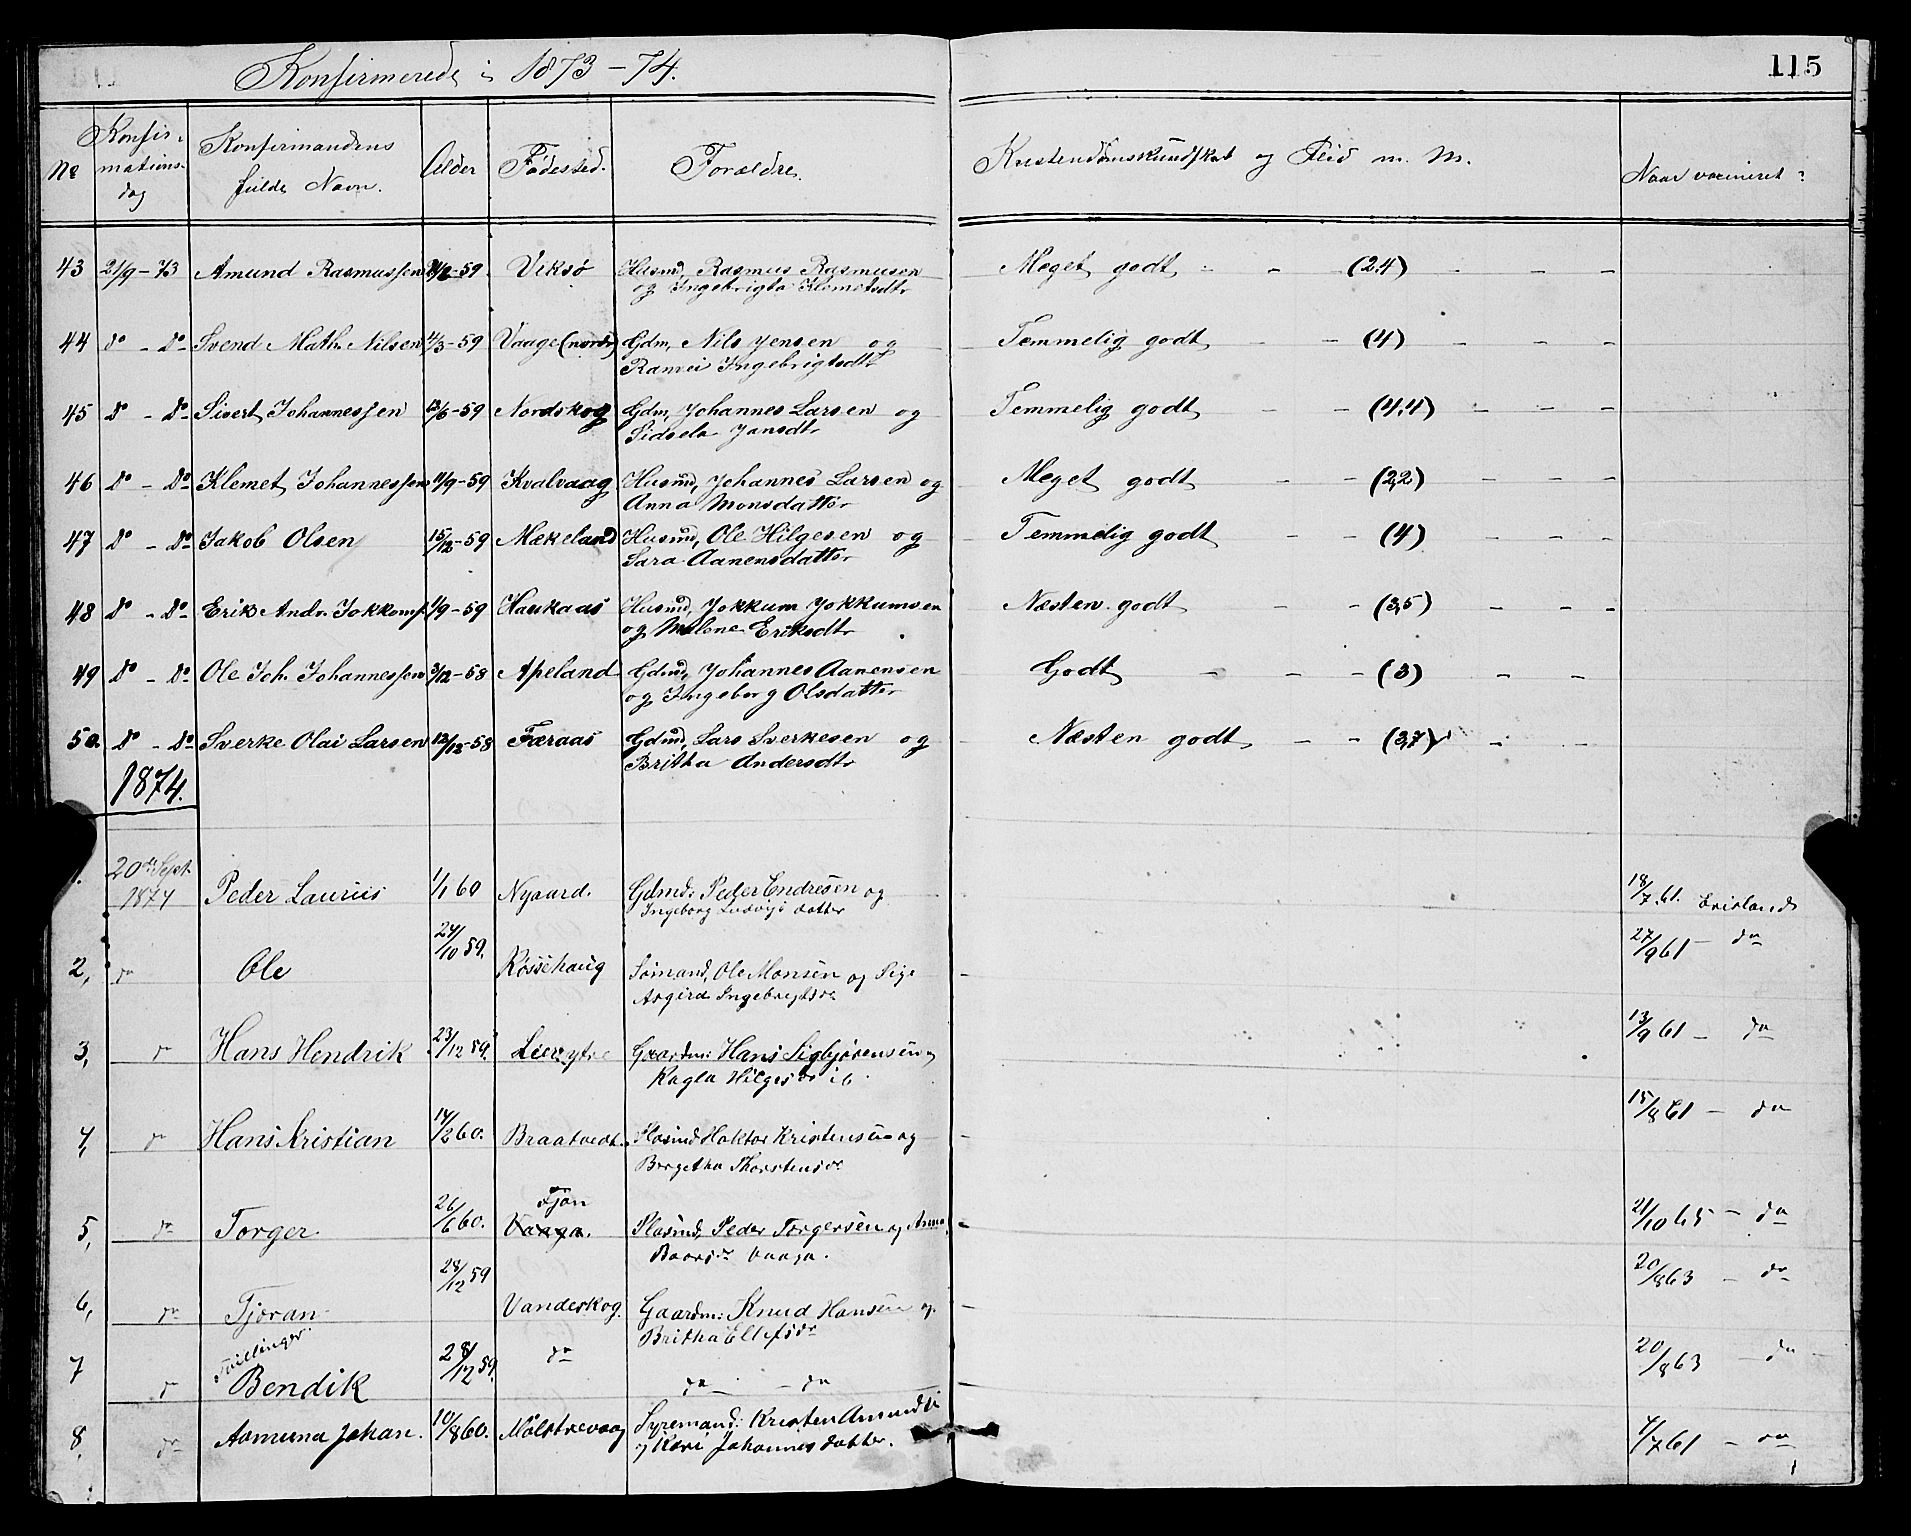 Konfirmerede i 1873-74.
115
No
Konfir-
mations-
dag
Konfirmandens
fulde Navn.
Alder
Fødested.
Forældre.
Kristendomskundskab og Flid m. M.
Naar vaccineret?
43 21/9-73 Amund Rasmussen -59 Viksø Husmd, Rasmus Rasmusen Meget godt - - (2,4) - - -
og Ingebrigta Klemetsdtr
44 Do - Do Svend Math. Nilsen 4/3-59 Vaage (nordr) Gdm, Nils Jensen og Temmelig godt - - (4) - - -
Ranvei Ingebrigtsdtr
45 Do - Do Sivert Johannessen 13/6-59 Nordskog Gdm, Johannes Larsen og Temmelig godt - - (4,4) - - -
Sidsela Jansdtr
46 Do - Do Klemet Johannessen 11/9-59 Kvalvaag Husmd, Johannes Larsen og Meget godt - - (2,2) - - -
Anna Monsdatter
47 Do - Do Jakob Olsen 15/12-59 Mækeland Husmd, Ole Hilgesen og Temmelig godt - - (4) - - -
Sara Aanensdatter
48 Do - Do Erik Andr. Jokkoms. 1/9-59 Haukaas Husmd, Jokkum Jokkumsen Næsten godt - - (3,5) - - -
og Malene Eriksdtr
49 Do - Do Ole Joh. Johannessen 3/12-58 Apeland Gdmd, Johannes Aanensen Godt - - - (3) - -
og Ingeborg Olsdatter
50. Do - Do Sverke Olai Larsen 12/12-58 Færaas Gdmd, Lars Sverkesen og Næsten godt - - (3,7) - -
Britha Andersdtr
1874.
1. 20de Sept. 1874 Peder Laurus 1/1 60 Nygaard. Gdmd: Peder Endresen og 18/7 61. 
Ingeborg Ludvigs datter
2, do Ole 24/10 59. Køssehaug Sømand, Ole Monsen og Sige 27/9 61 - do
Asgird Ingebregtsdr
3, do Hans Hendrik 23/12 59. Lier ytre Gaardm: Hans Sigbjørensen og 13/9 61 - do
Ragla Hilgesdr ib.
4, do Hans Kristian 14/2 60. Braatvedt. Plasmd Haktor Kristensen og 15/8 61 - do
Bergetha Thorstensdr
5, do Torger. 26/6 60. Fjon Vaaga. Plasmd, Peder Torgersen og Anna 21/10 65 - do
Baarsdr Vaaga.
6, do Tjøran 28/12 59 Vandeskog. Gaardm: Knud Hansen og 20/8 63 - do
Britha Ellefsdr
Tvillinger.
7 do Bendik 28/12 59. do do - do 20/8 63 - do
8. do Aamund Johan. 10/8 60. Mølstrevaag Kristen Amunds 1/7 61 - do
og Kari Johannesdatter.